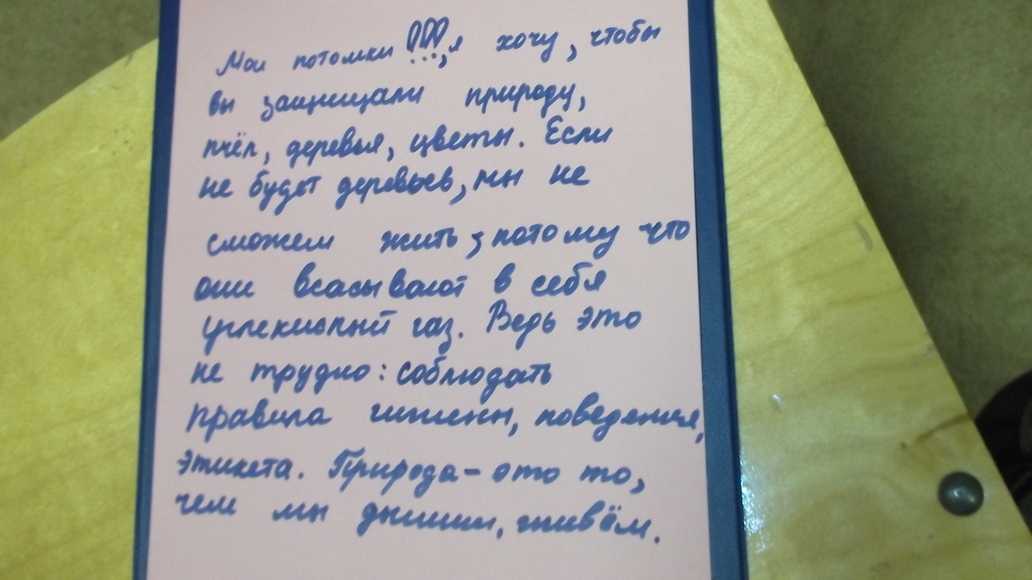 Мои потомки!!!, я хочу, чтобы
вы защищали природу,
пчёл, деревья, цветы. Если
не будет деревьев, мы не
сможем жить, потому что
они всасывают в себя
углекислый газ. Ведь это
не трудно: соблюдать
правила гигиены, поведения,
этикета. Природа - это то,
чем мы дышим, живём.